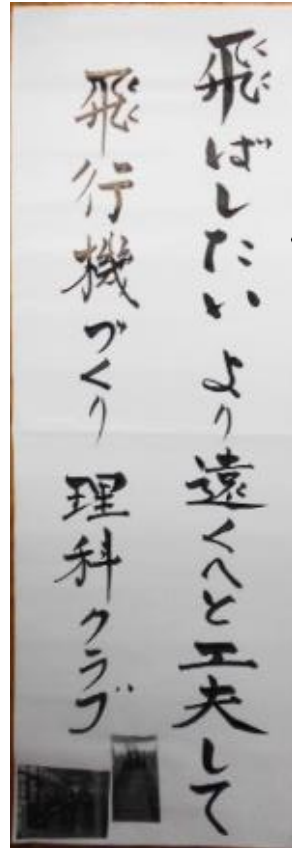 飛ばしたい より遠くへと工夫して
飛行機づくり 理科クラブ